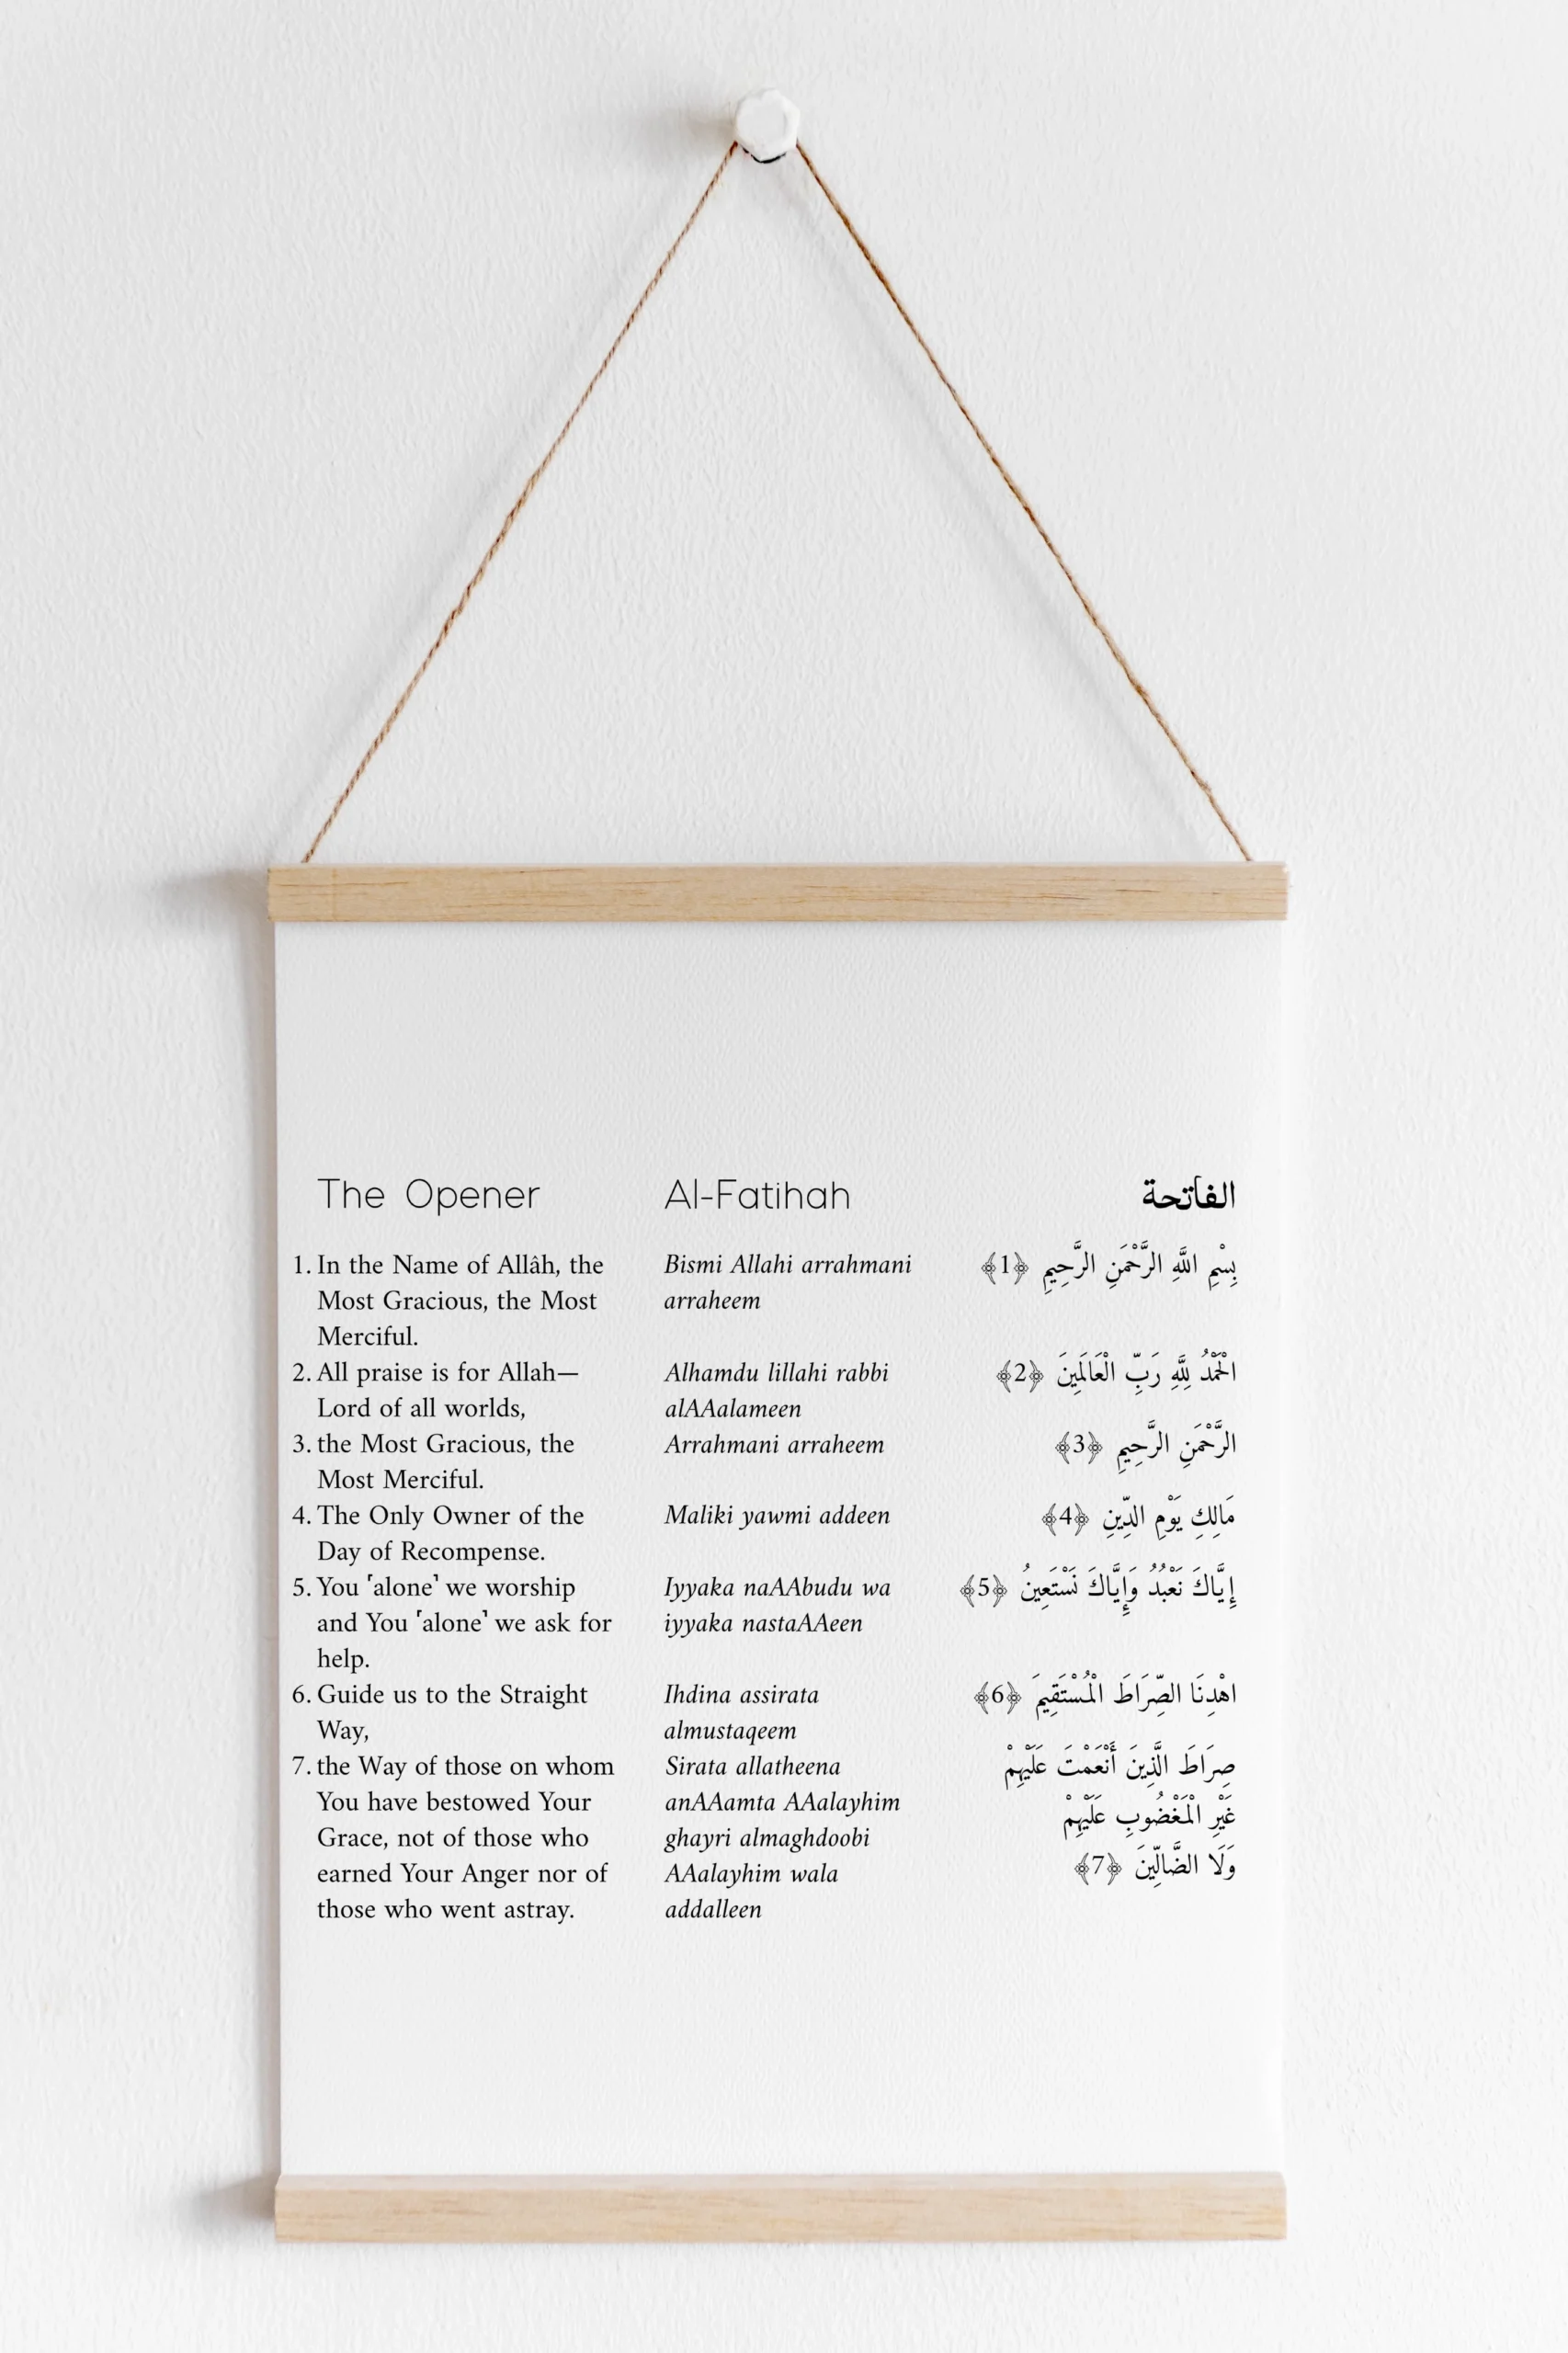 The Opener
1. In the Name of Allâh, the
Most Gracious, the Most
Merciful.
2. All praise is for Allah—
Lord of all worlds,
3. the Most Gracious, the
Most Merciful.
4. The Only Owner of the
Day of Recompense.
5. You ˹alone˺ we worship
and You ˹alone˺ we ask for
help.
6. Guide us to the Straight
Way,
7. the Way of those on whom
You have bestowed Your
Grace, not of those who
earned Your Anger nor of
those who went astray.
Al-Fatihah
Bismi Allahi arrahmani
arraheem
Alhamdu lillahi rabbi
alAAalameen
Arrahmani arraheem
Maliki yawmi addeen
Iyyaka naAAbudu wa
iyyaka nastaAAeen
Ihdina assirata
almustaqeem
Sirata allatheena
anAAamta AAalayhim
ghayri almaghdoobi
AAalayhim wala
addalleen
الفاتحة
بِسْمِ اللَّهِ الرَّحْمَنِ الرَّحِيمِ ﴿1﴾
الْحَمْدُ لِلَّهِ رَبِّ الْعَالَمِينَ ﴿2﴾
الرَّحْمَنِ الرَّحِيمِ ﴿3﴾
مَالِكِ يَوْمِ الدِّينِ ﴿4﴾
إِيَّاكَ نَعْبُدُ وَإِيَّاكَ نَسْتَعِينُ ﴿5﴾
اهْدِنَا الصِّرَاطَ الْمُسْتَقِيمَ ﴿6﴾
صِرَاطَ الَّذِينَ أَنْعَمْتَ عَلَيْهِمْ
غَيْرِ الْمَغْضُوبِ عَلَيْهِمْ
وَلَا الضَّالِّينَ ﴿7﴾